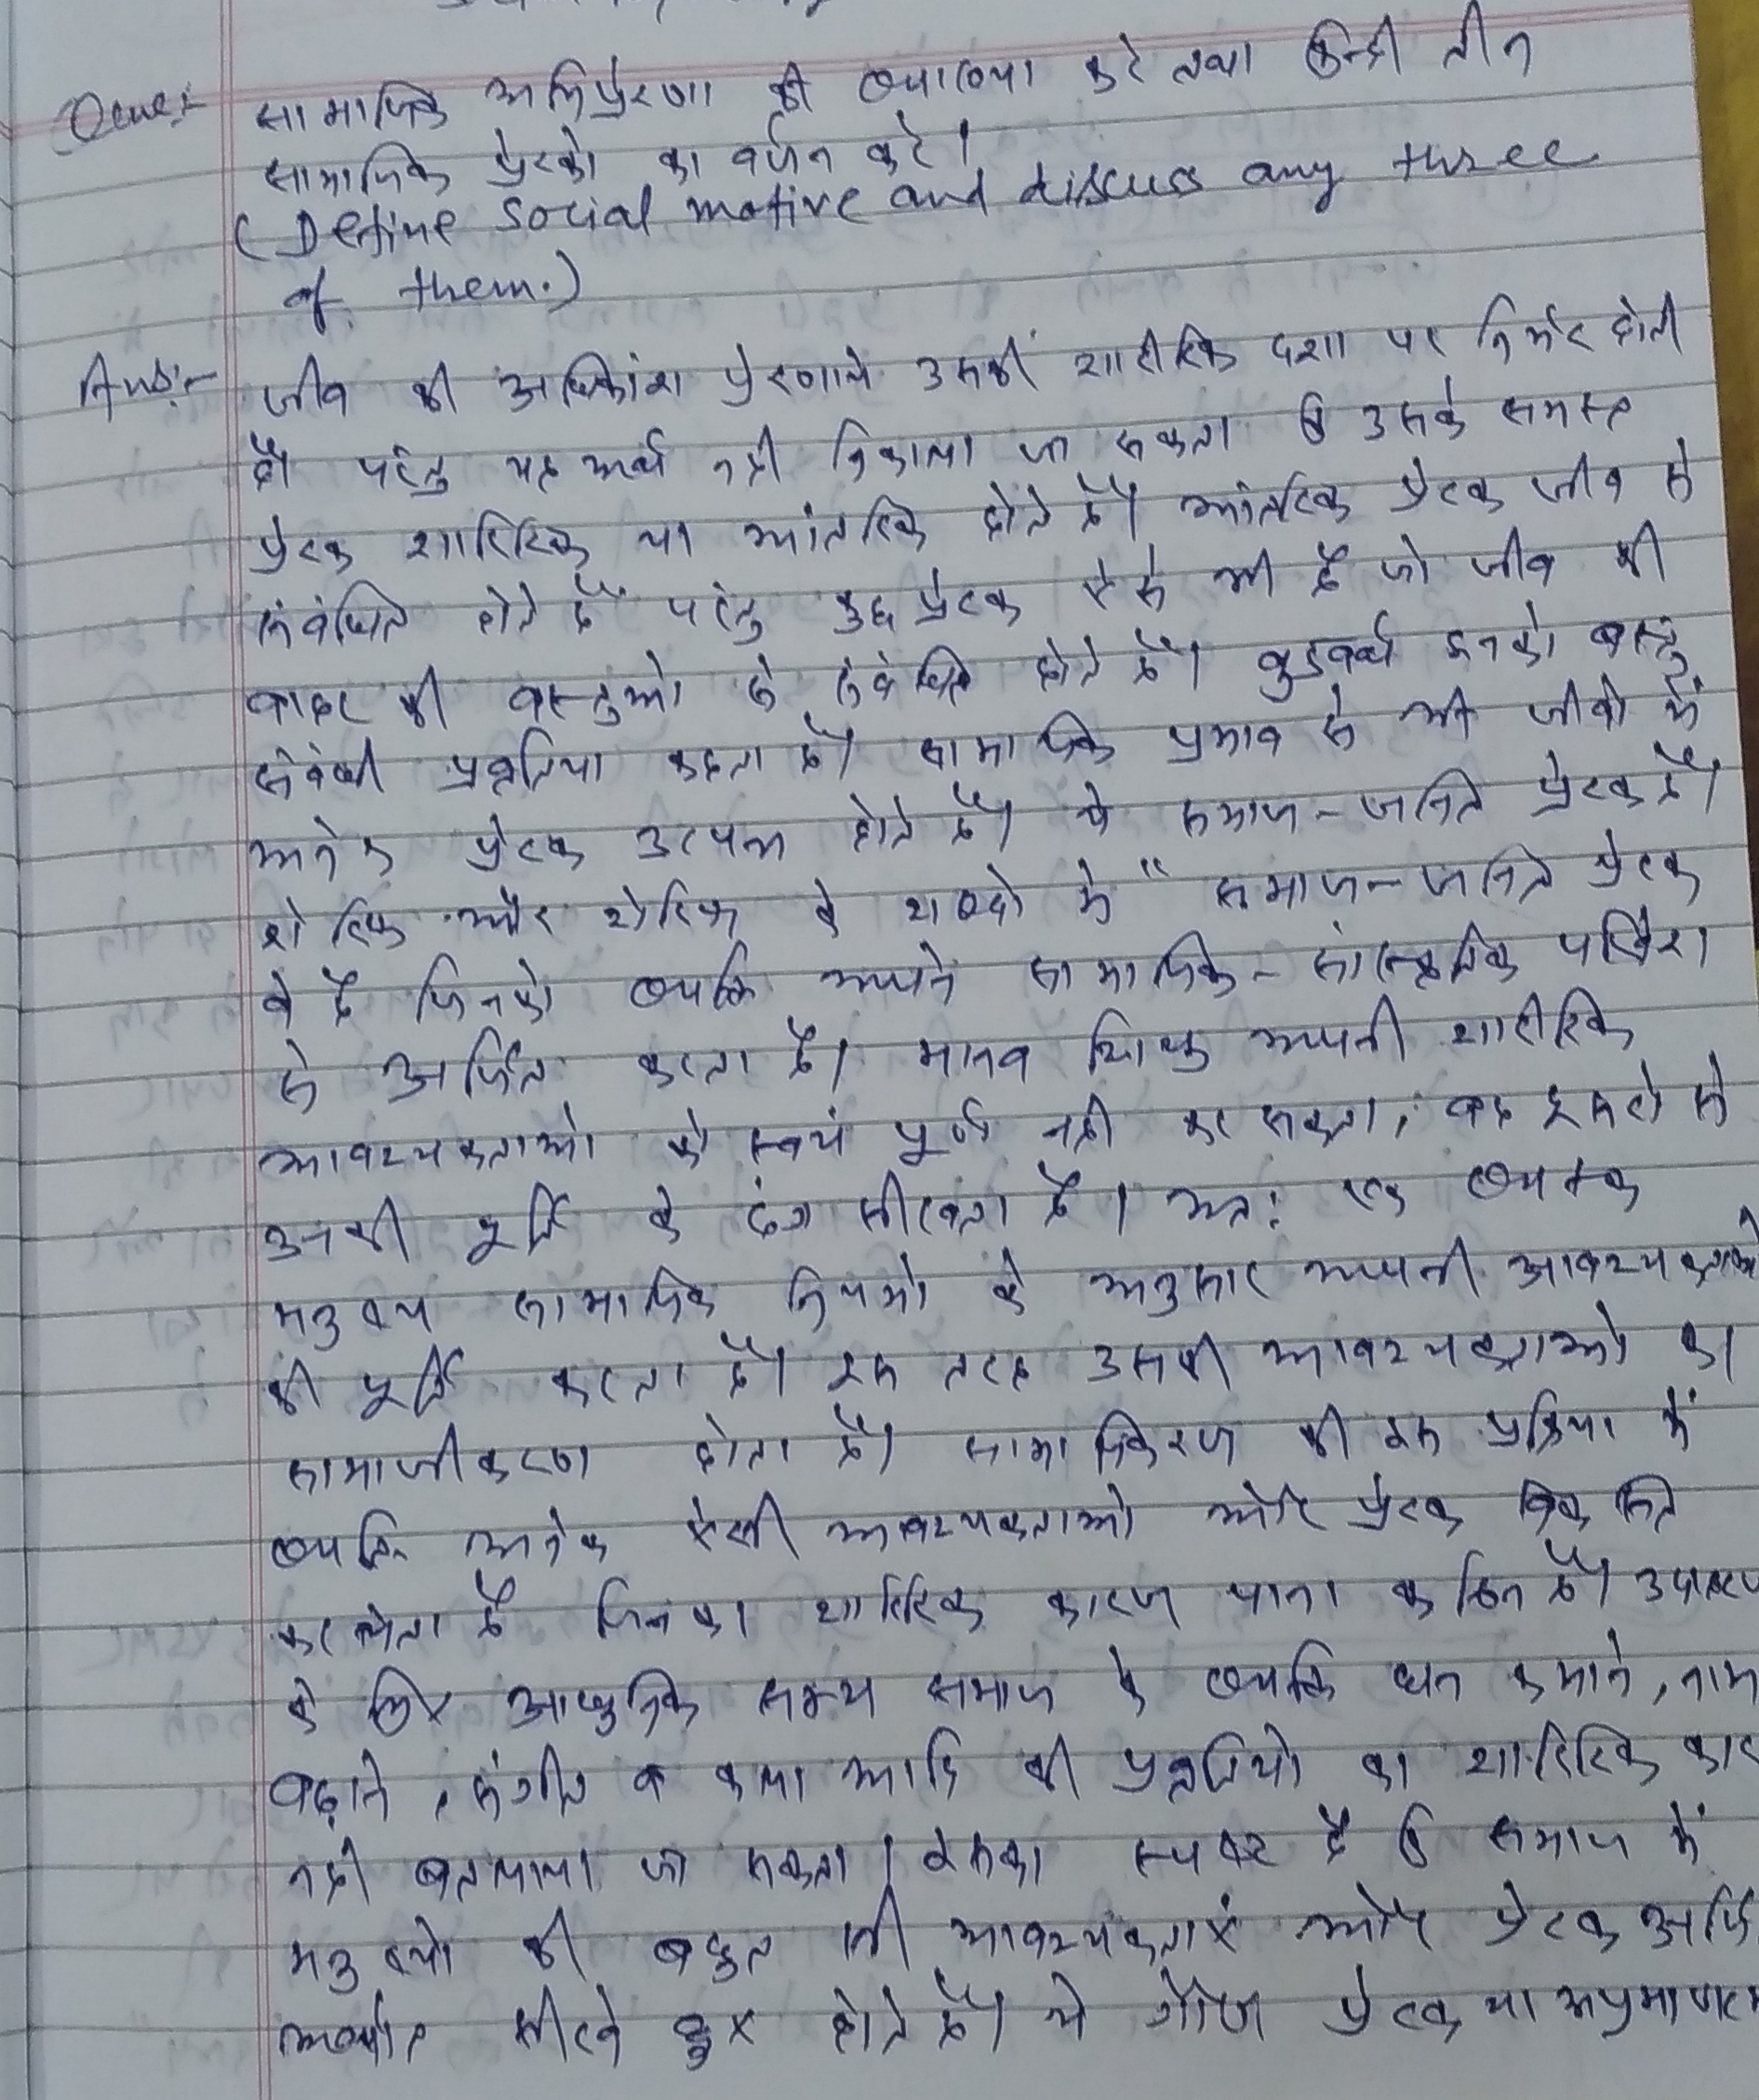 Ques:- सामाजिक अभिप्रेरणा की व्याख्या करे तथा किन्ही तीन
सामाजिक प्रेरको का वर्णन करे।
(Define social motive and discuss any three
of them.)
Ans:- जीव की अधिकांश प्रेरणाये उसकी शारीरिक दशा पर निर्भर होती
है। परंतु यह अर्थ नही निकाला जा सकता कि उसके समस्त
प्रेरक शारिरिक या आंतरिक होते है। आंतरिक प्रेरक जीव से
संबंधित होते है परंतु कुछ प्रेरक ऐसे भी है जो जीव की
बाहर की वस्तुओ से संबंधित होते है। वुडवर्थ इनको वस्तु
संबंधी प्रवृतिया कहता है। सामाजिक प्रभाव से भी जीवो में
अनेक प्रेरक उत्पन्न होते है। ये समाज-जनित प्रेरक है।
शेरिफ और शेरिफ के शब्दो मे "समाज-जनित प्रेरक
वे है जिनको व्यक्ति अपने सामाजिक-सांस्कृतिक परिवेश
से अर्जित करता है। मानव शिशु अपनी शारीरिक
आवश्यकताओ को स्वयं पूर्ण नही कर सकता, वह दूसरो से
उनकी पूर्ति के ढंग सीखता है। अतः एक व्यस्क
मनुष्य सामाजिक नियमो के अनुसार अपनी आवश्यकताओ
की पूर्ति करता है। इस तरह उसकी आवश्यकताओ का
सामाजीकरण होता है। सामाजिकरण की इस प्रक्रिया में
व्यक्ति अनेक ऐसी आवश्यकताओ और प्रेरक विकसित
कर लेता है जिनका शारिरिक कारण पाना कठिन है। उदाहरण
के लिए आधुनिक सभ्य समाज के व्यक्ति धन कमाने, नाम
बढ़ाने, संगीत व कला आदि की प्रवृतियो का शारिरिक कार
नही बतलाया जा सकता। इसका स्पष्ट है कि समाज में
मनुष्यो की बहुत सी आवश्यकताएं और प्रेरक अर्जि
अर्थात सीखे हुए होते है। ये गौण प्रेरक या अप्रमाणर